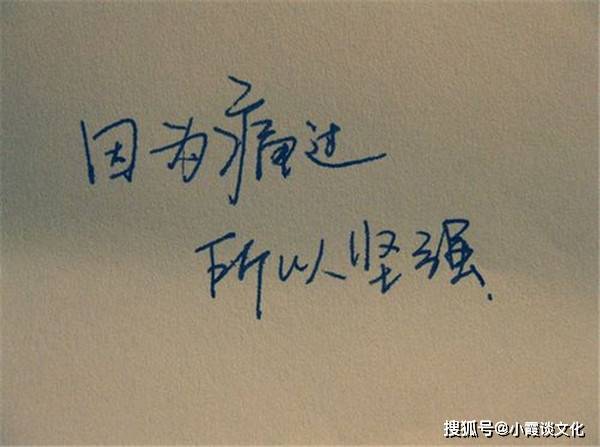 因为痛过
所以坚强.
搜狐号@小霞谈文化